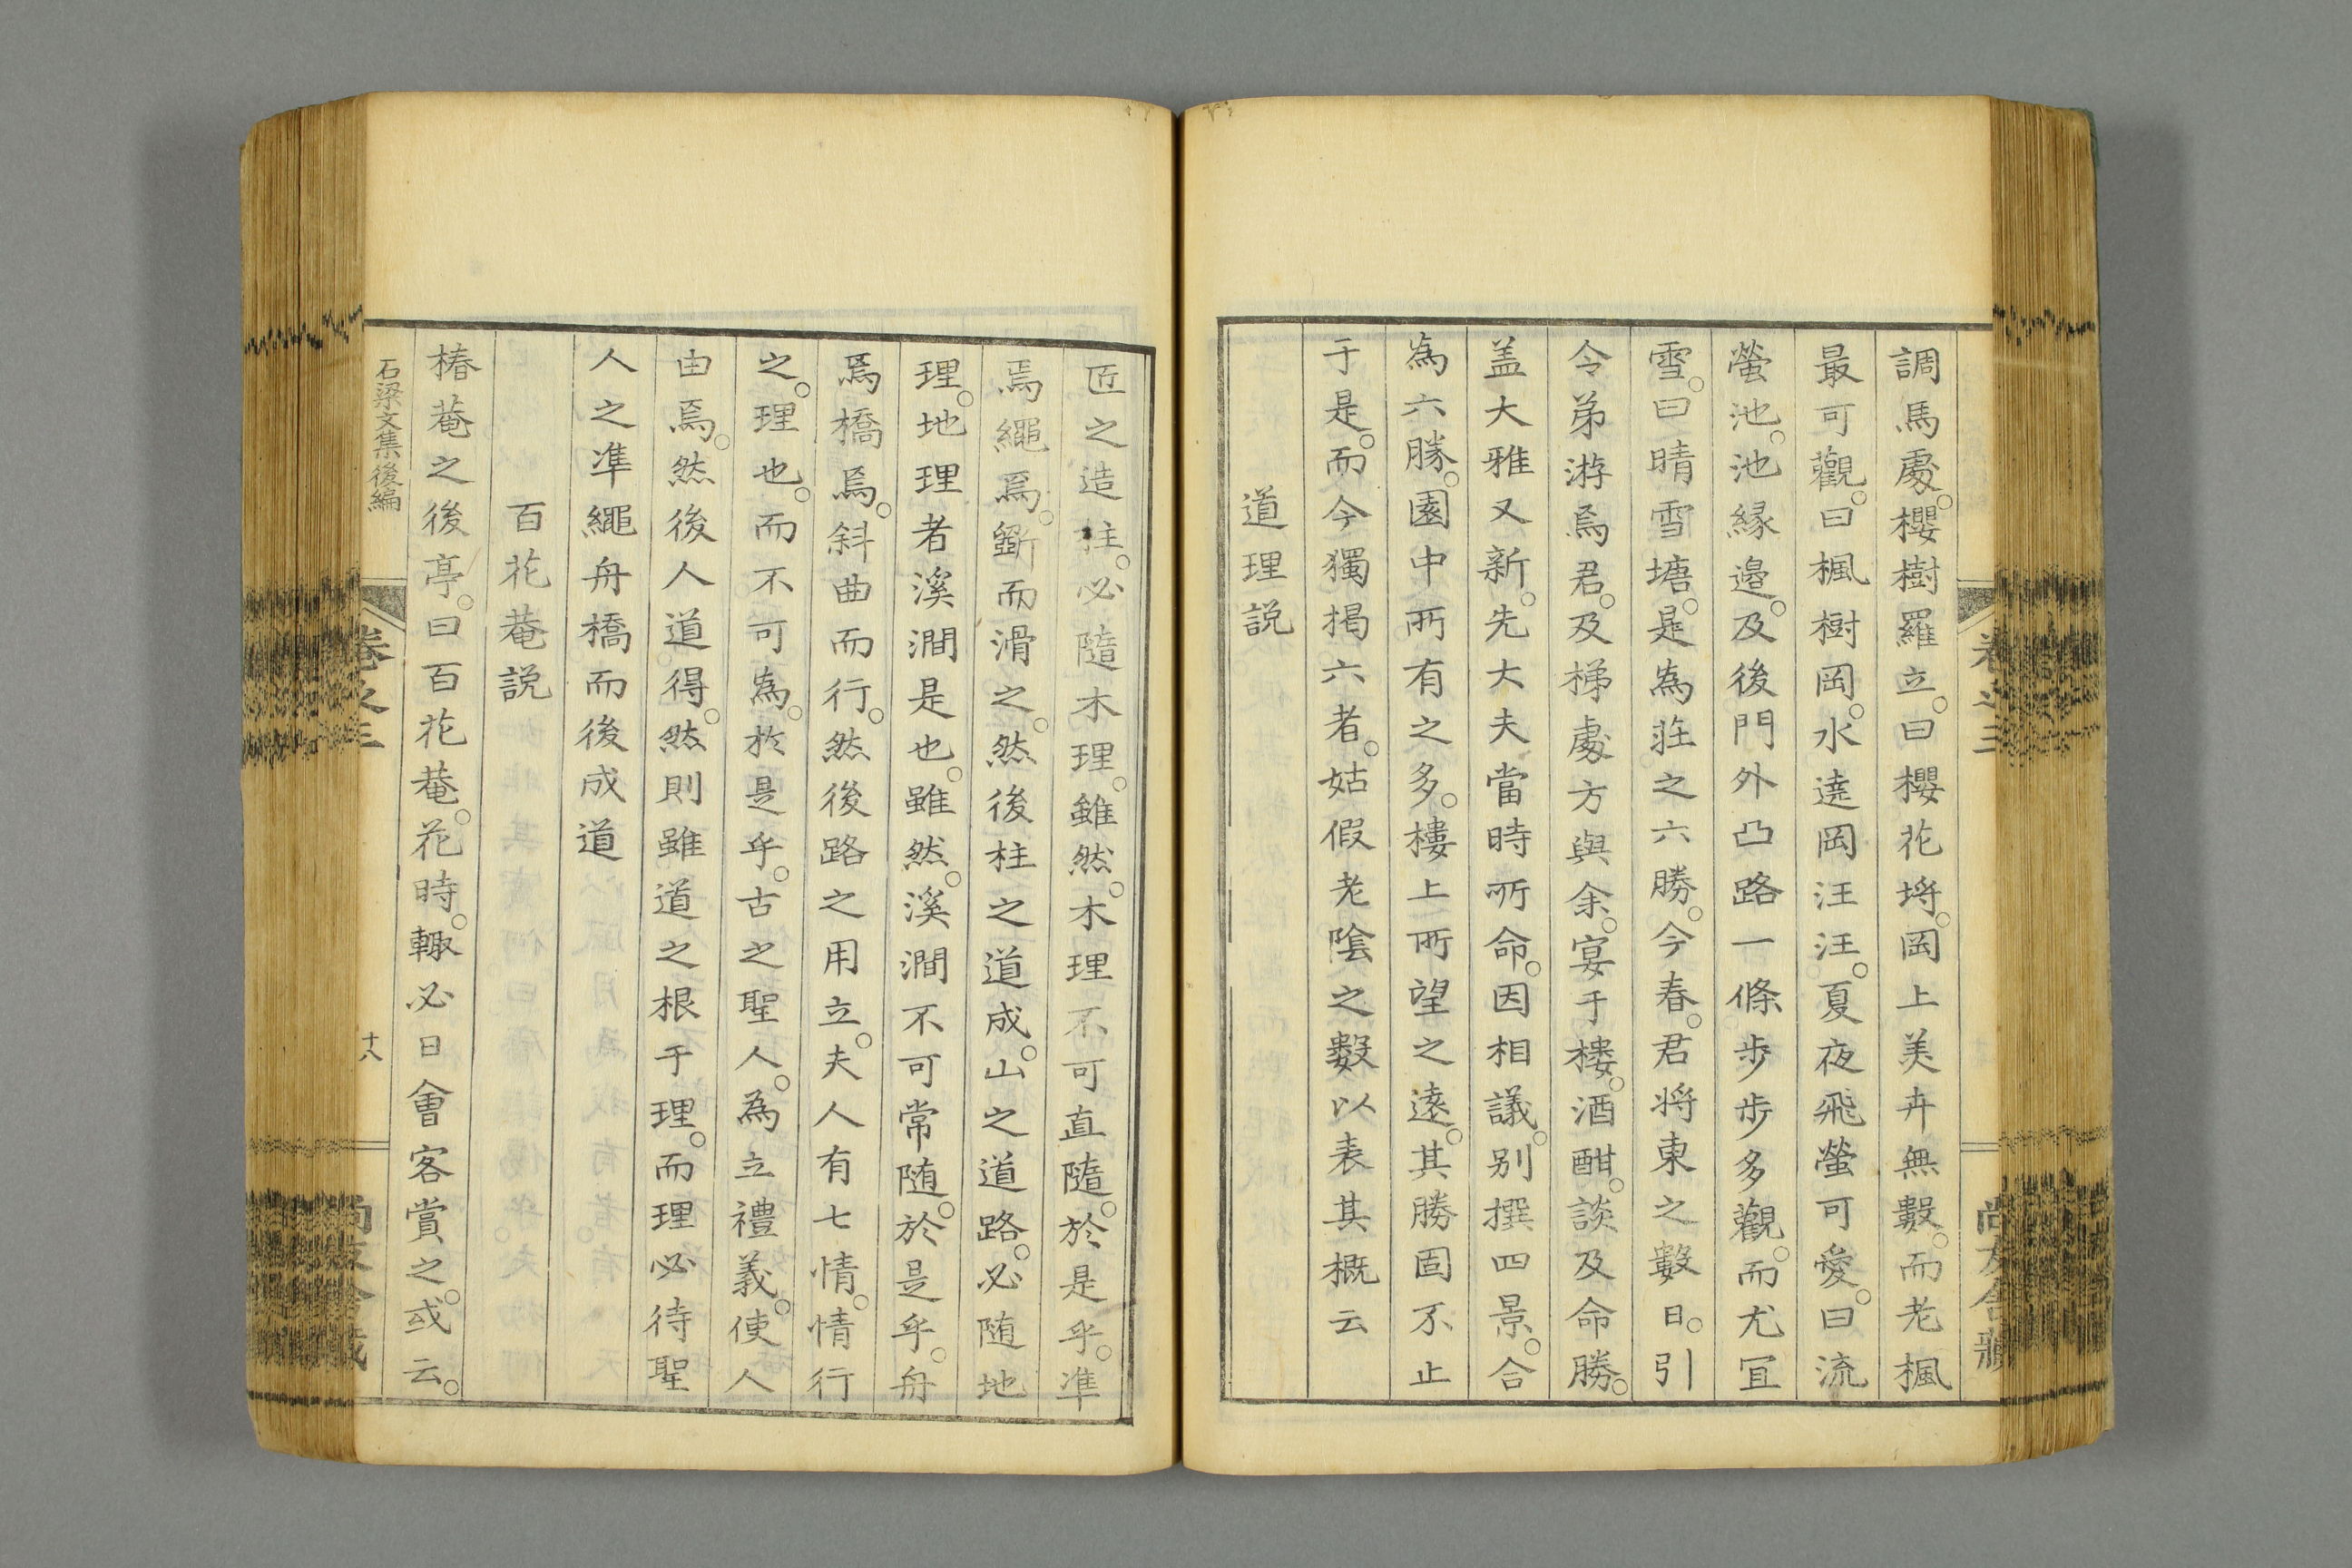 調馬處。櫻樹羅立。曰櫻花埒。岡上美卉無數。而老楓
最可觀。曰楓樹岡。水遶岡汪汪。夏夜飛螢可愛。曰流
螢池。池緣邉。及後門外凸路一條步步多觀。而尤冝
雪。曰晴雪塘。是為莊之六勝。今春。君将東之數日。引
令弟游焉。君。及梯處方與余。宴于樓。酒酣。談及命勝。
盖大雅又新。先大夫當時所命。因相議。别撰四景。合
為六勝。園中所有之多。樓上所望之遠。其勝固不止
于是。而今獨揭六者。姑假老陰之數以表其概云
道理説
匠之造柱。必隨木理。雖然。木理不可直隨。於是乎。準
焉繩焉。斵而滑之。然後柱之道成。山之道路。必随地
理。地理者溪澗是也。雖然。溪澗不可常随。於是乎。舟
焉橋焉。斜曲而行。然後路之用立。夫人有七情。情行
之。理也。而不可為。於是乎。古之聖人。為立禮義。使人
由焉。然後人道得。然則雖道之根于理。而理必待聖
人之準繩舟橋而後成道
百花菴説
椿菴之後亭。曰百花菴。花時。輙必日會客賞之。或云。
石梁文集後編
卷之三
十八
尚友舍藏